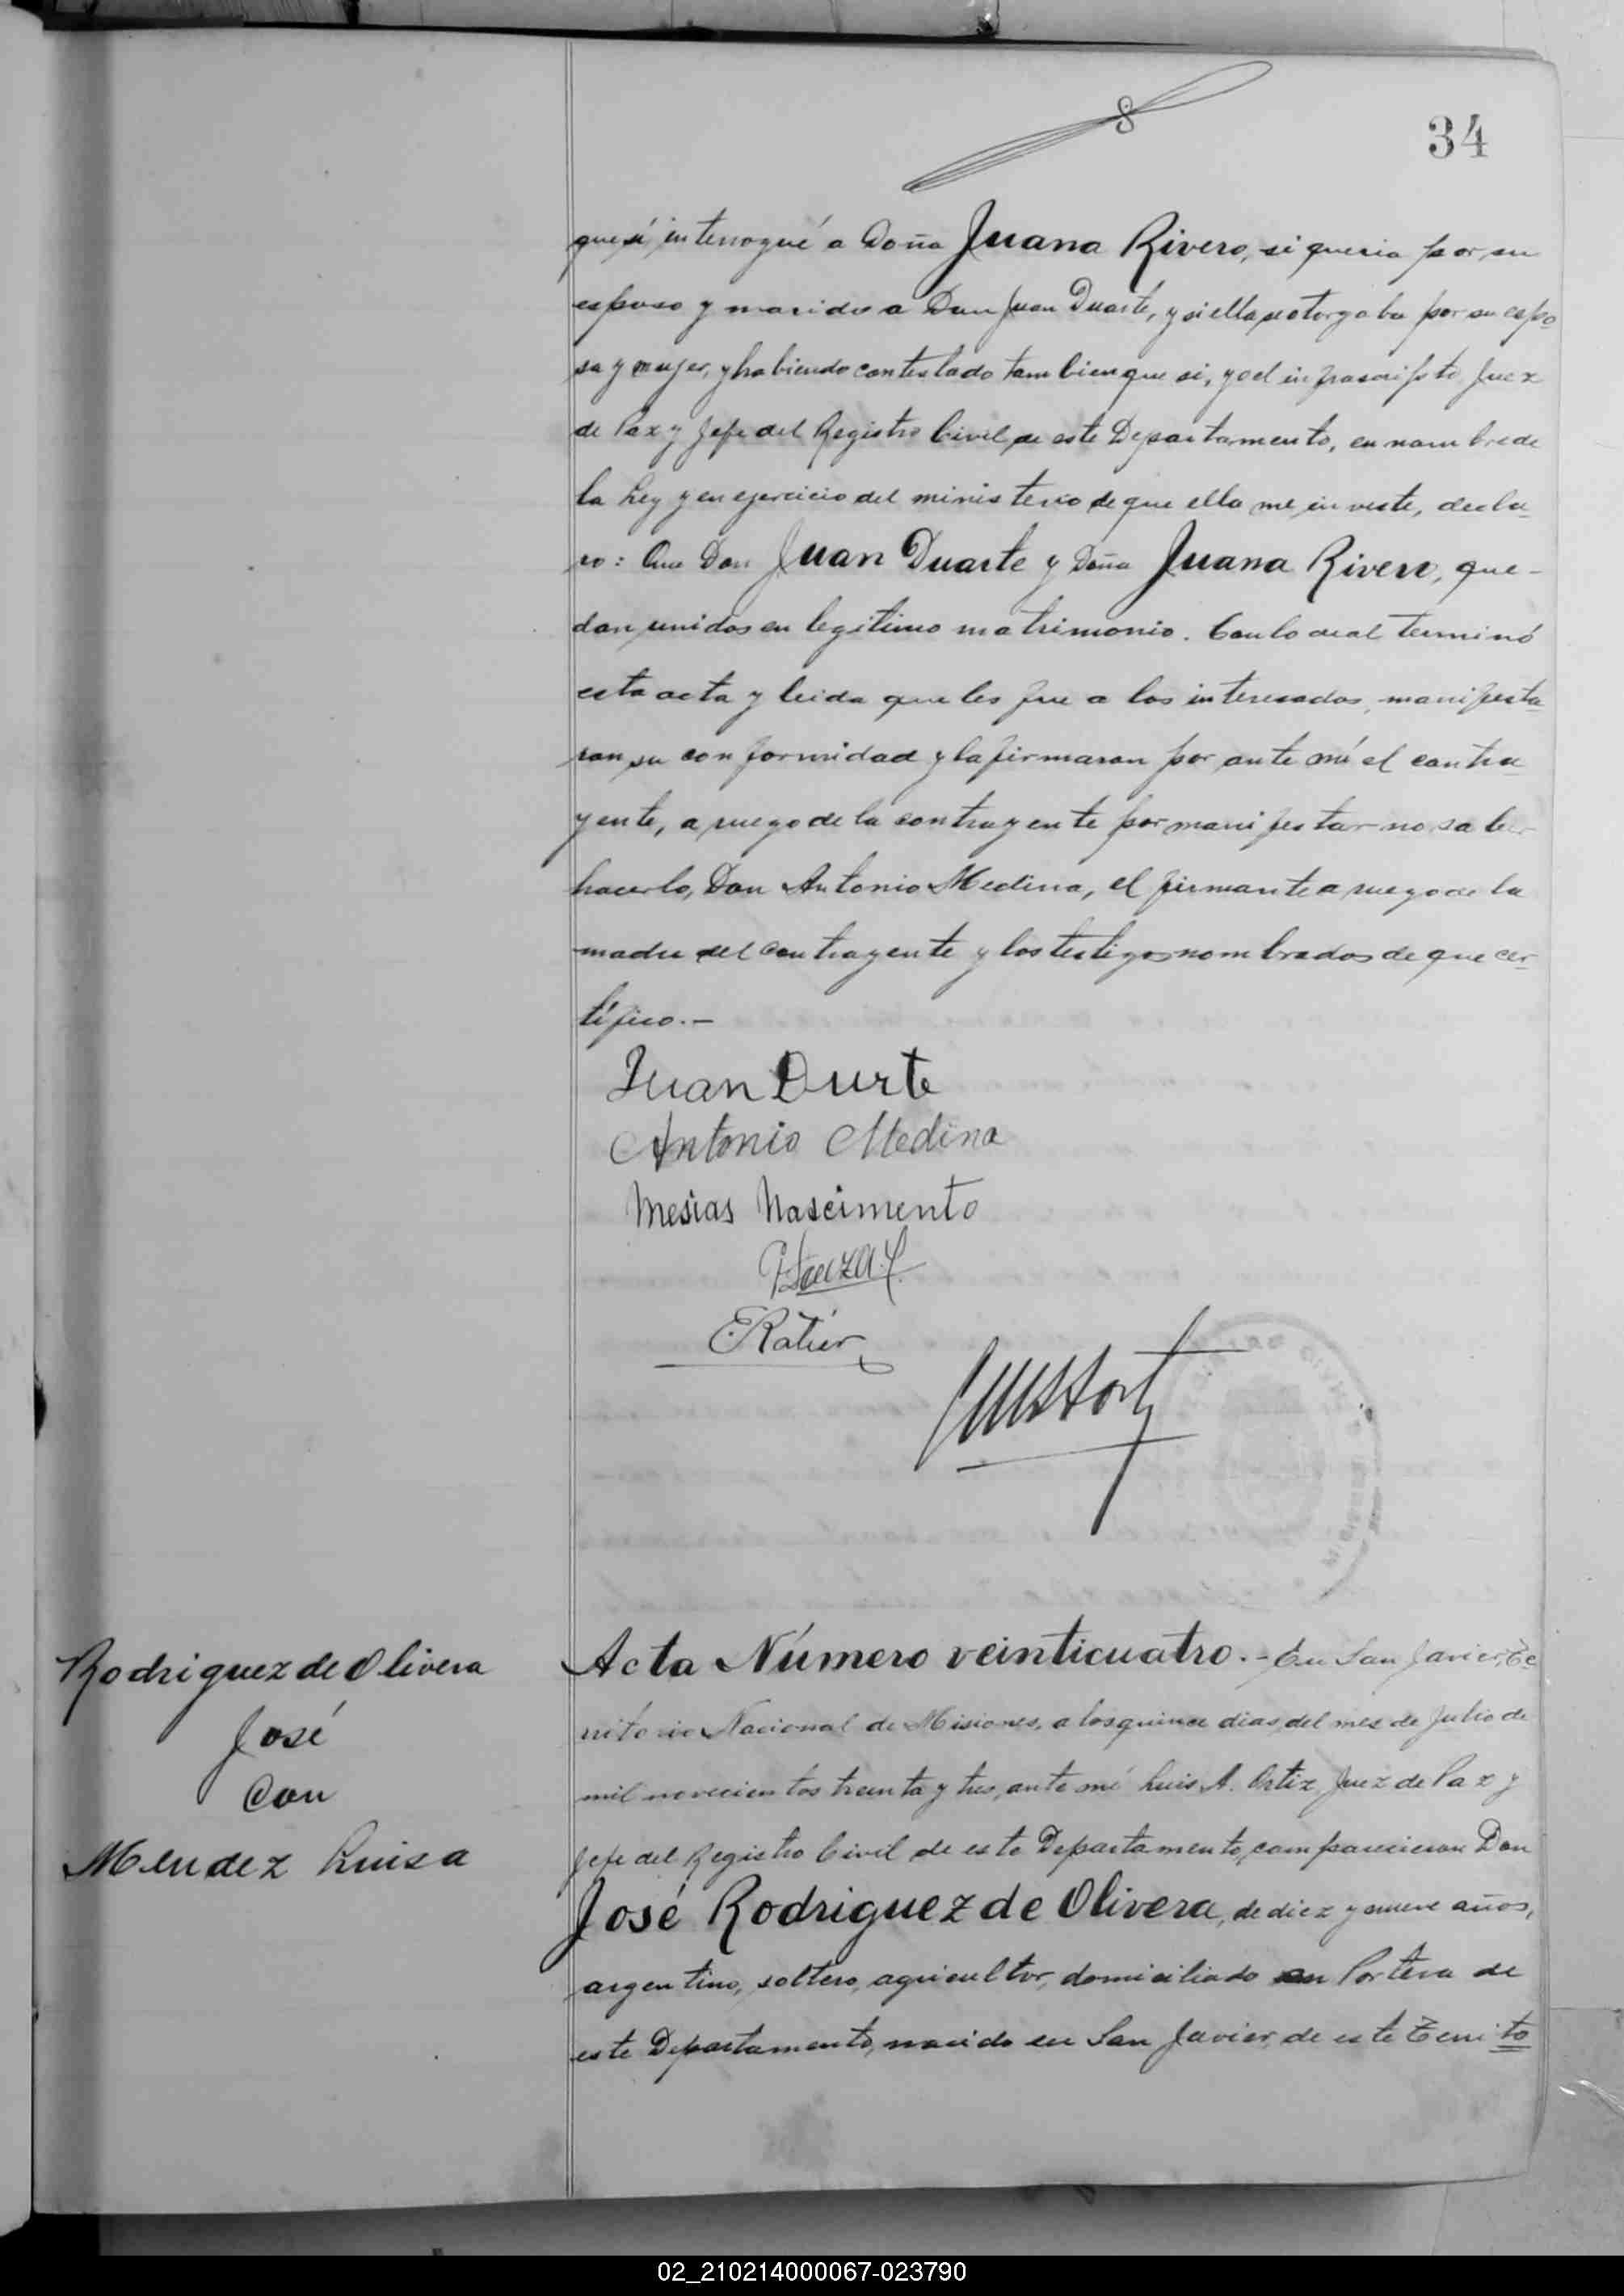 34
que sí, interrogué a Doña Juana Rivero, si queria por su
esposo y marido a Don Juan Duarte, y si ella se otorgaba por su espo
sa y mujer, y habiendo contestado tambien que si, yo el infrascripto Juez
de Paz y Jefe del Registro Civil de este Departamento, en nombre de
la Ley y en ejercicio del ministerio de que ella me inviste, decla-
ro: Que Don Juan Duarte y Doña Juana Rivero, que-
dan unidos en legitimo matrimonio. Con lo cual terminó
esta acta y leida que les fue a los interesados, manifesta
ron su conformidad y la firmaron por ante mí el contra
yente, a ruego de la contrayente por manifestar no saber
hacerlo, Don Antonio Medina, el firmante a ruego de la
madre del contrayente y los testigos nombrados de que cer-
tífico.-
Juan Durte
Antonio Medina
Mesias Nascimento
E Ratier
Rodriguez de Olivera
José
Con
Mendez Luisa
Acta Número veinticuatro.- En San Javier, Te
rritorio Nacional de Misiones, a los quince dias del mes de Julio de
mil novecientos treinta y tres, ante mí Luis A. Ortiz, Juez de Paz y
Jefe del Registro Civil de este Departamento, comparecieron Don
José Rodriguez de Olivera, de diez y nueve años,
argentino, soltero, agricultor, domiciliado en Portera de
este Departamento, nacido en San Javier, de este Territo
02_210214000067-023790